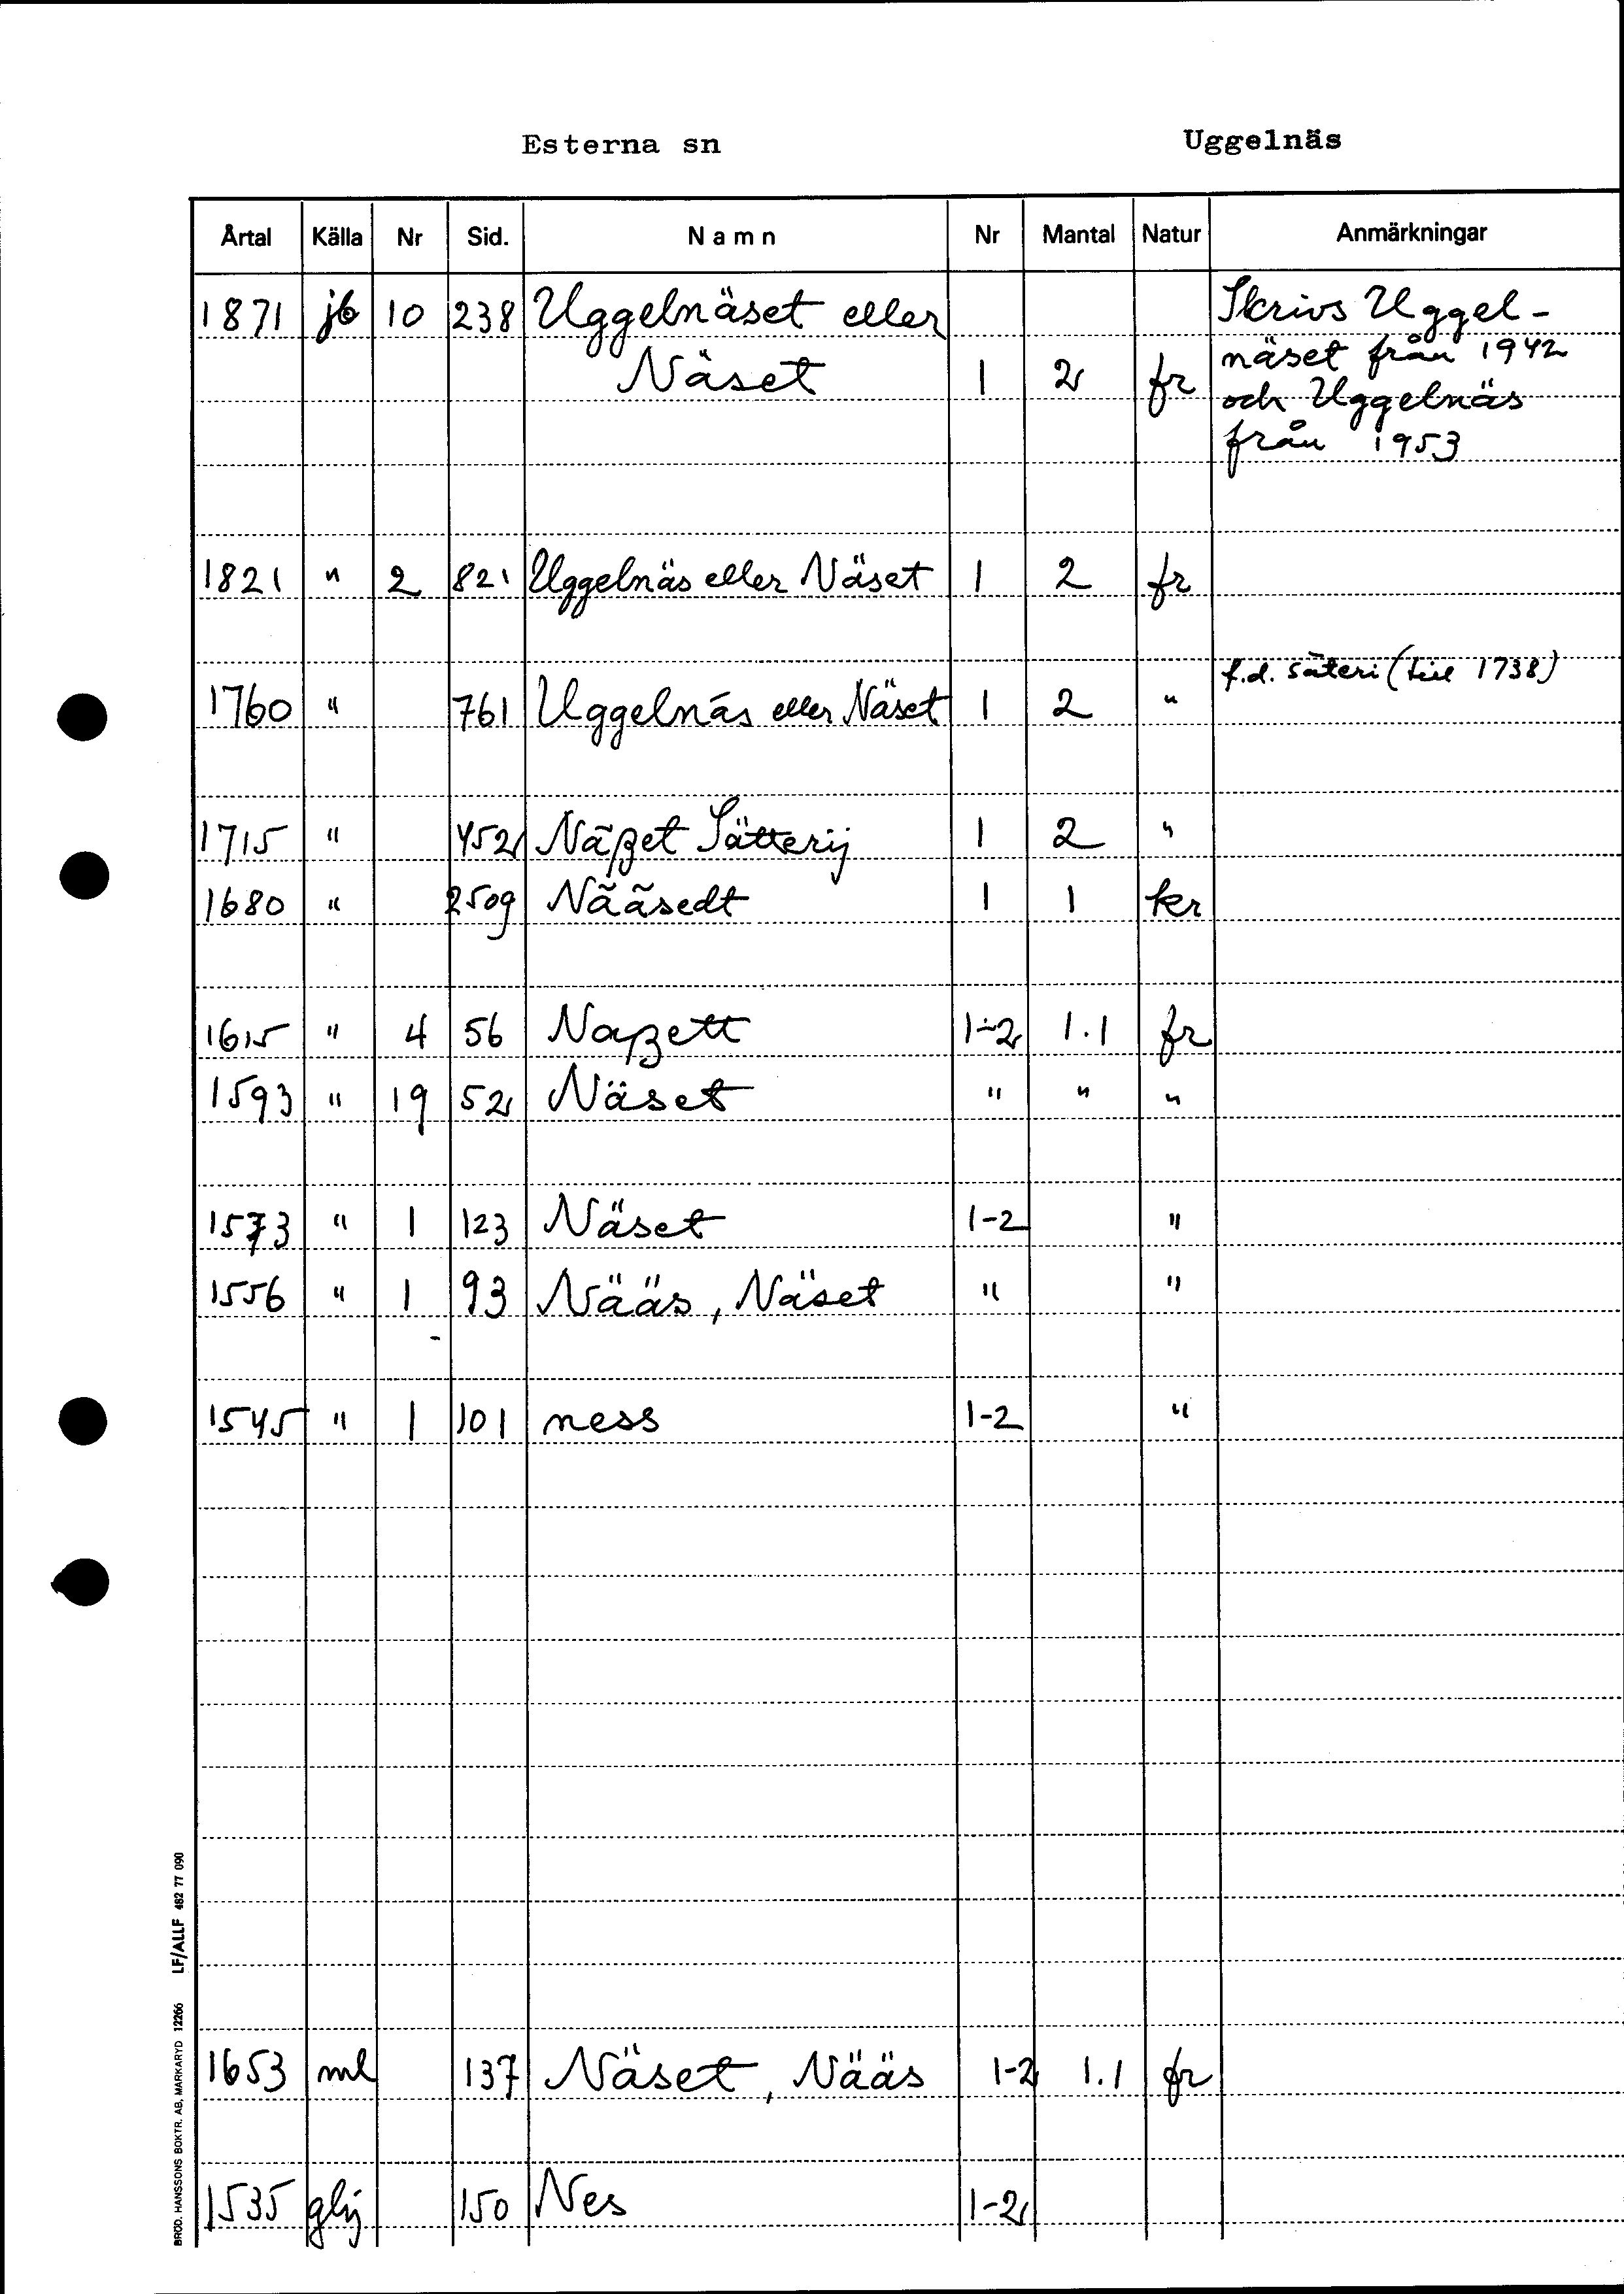 Esterna sn Uggelnäs
Årtal Källa Nr Sid. Namn Nr Mantal Natur Anmärkningar
1871 jb 10 238 Uggelnäset eller Skrivs Uggel-
Näset 1 2 fr näset från 1942
och Uggelnäs
från 1953
1821 " 2 821 Uggelnäs eller Näset 1 2 fr
f.d. säteri (till 1738)
1760 " 761 Uggelnäs eller Näset 1 2 "
1715 " 452 Näßet Sätterij 1 2 "
1680 " 2509 Nããsedt 1 1 kr
1615 " 4 56 Naßett 1-2 1.1 fr
1593 " 19 52 Näset " " "
1573 " 1 123 Näset 1-2 "
1556 " 1 93 Nääs, Näset " "
1545 " 1 101 ness 1-2 "
1653 ml 137 Näset, Nääs 1-2 1.1 fr
1535 glij 150 Nes 1-2
BRÖD. HANSSONS BOKTR. AB, MARKARYD 12266 LF/ALLF 462 77 090